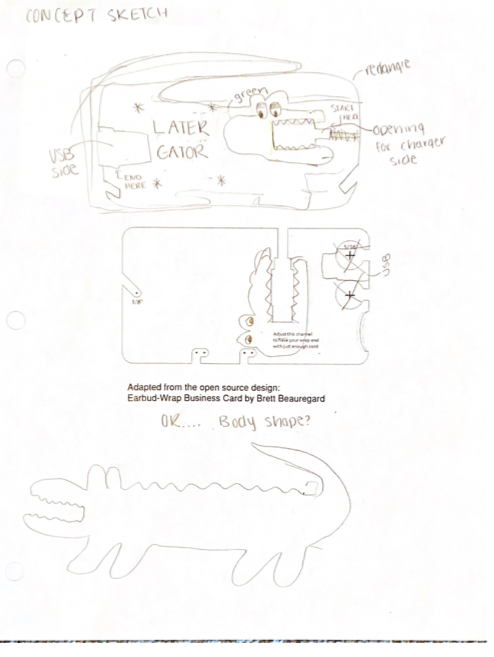 CONCEPT SKETCH
rectangle
green
START
HERE
opening
for charger
side
LATER
GATOR
USB
side
END
HERE
USB
Adjust this channel
to fixate your wrap end
with just enough cord
Adapted from the open source design:
Earbud-Wrap Business Card by Brett Beauregard
OR.... Body shape?